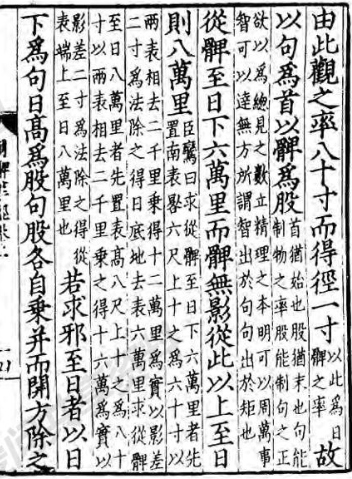 由此觀之率八十寸而得徑一寸以此爲日髀之率故
以句爲首以髀爲股首猶始也股猶末也句能制物之率股能制句之正
欲以爲總見之數立精理之本明可以周萬事智可以達無方所謂智出於句句出於矩也
從髀至日下六萬里而髀無影從此以上至日
則八萬里臣鸞曰求從髀至日下六萬里者置南表晷六尺上十之爲六十寸以
兩表相去二千里乘得十二萬里爲實以影差二寸爲法除之得日底地去表六萬里求從髀
至日八萬里者先置表髙八尺上十之爲八十寸以兩表相去二千里乘之得十六萬爲實以
影差二寸爲法除之得從表端上至日八萬里也若求邪至日者以日
下爲句日髙爲股句股各自乘并而開方除之